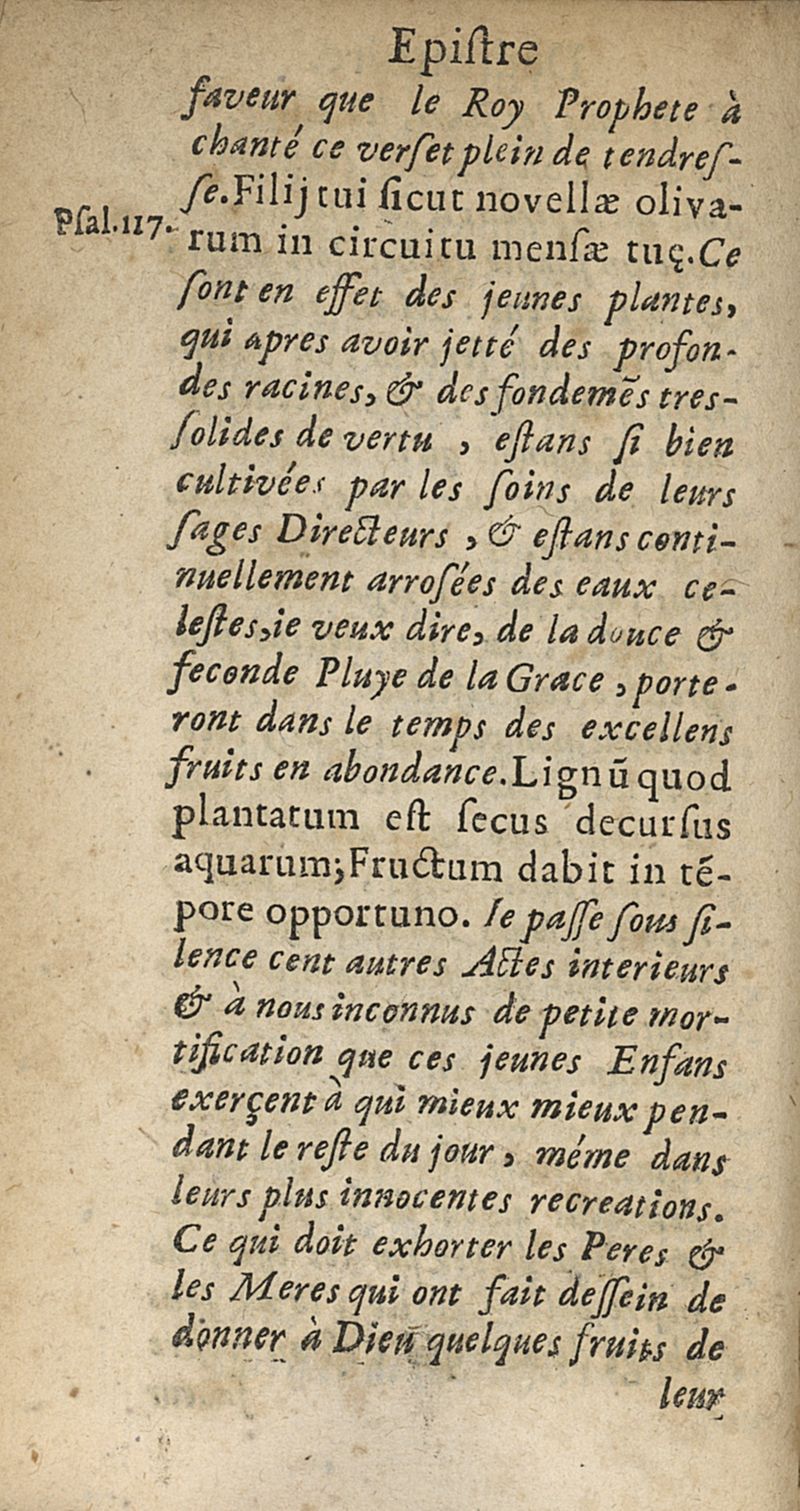 Epiſtre
faveur que le Roy Prophete à
chanté ce verſet plein de tendreſ-
ſe. Filij tui ſicut novellæ oliva-
Pſal. 117.
rum in circuitu menſæ tuę. Ce
ſont en effet des jeunes plantes,
qui apres avoir jetté des profon-
des racines, & des fondemẽs tres-
ſolides de vertu , eſtans ſi bien
cultivées par les ſoins de leurs
ſages Directeurs , & eſtans conti-
nuellement arroſées des eaux ce-
leſtes, ie veux dire, de la douce &
feconde Pluye de la Grace , porte-
ront dans le temps des excellens
fruits en abondance. Lignũ quod
plantatum eſt ſecus decurſus
aquarum; Fructum dabit in tẽ-
pore opportuno. Ie paſſe ſous ſi-
lence cent autres Actes interieurs
& à nous inconnus de petite mor-
tification que ces jeunes Enfans
exerçent à qui mieux mieux pen-
dant le reſte du jour , méme dans
leurs plus innocentes recreations.
Ce qui doit exhorter les Peres &
les Meres qui ont fait deſſein de
donner à Dieu quelques fruits de
leur